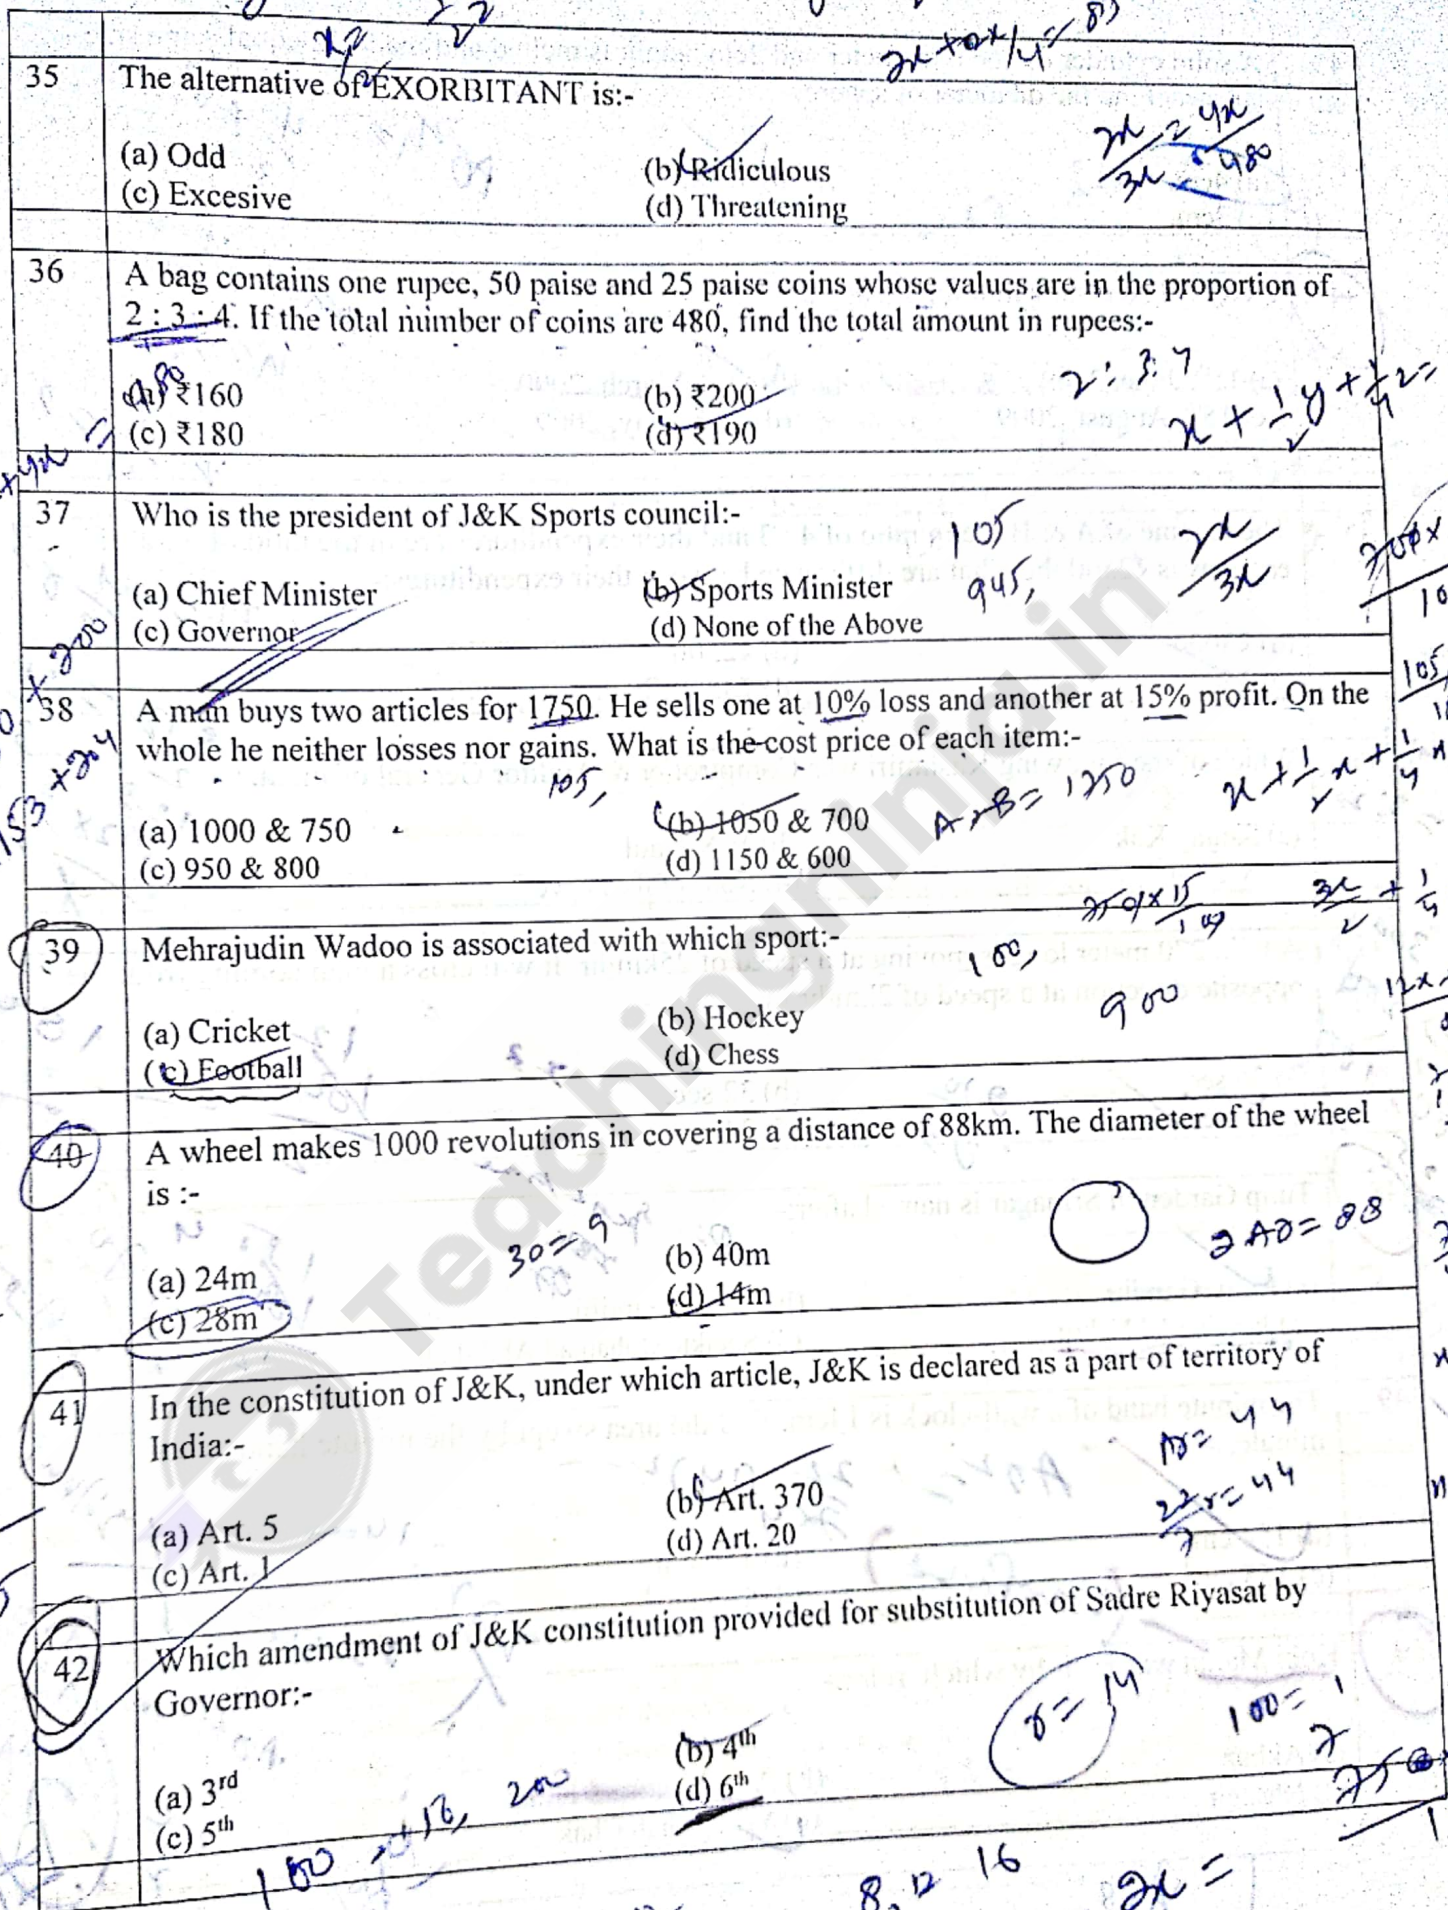 2x + 2x/4 = 83
35 The alternative of EXORBITANT is:-
(a) Odd (b) Ridiculous
(c) Excesive (d) Threatening
36 A bag contains one rupee, 50 paise and 25 paise coins whose values are in the proportion of
2 : 3 : 4. If the total number of coins are 480, find the total amount in rupees:-
2 : 3 : 4
(a) ₹160 (b) ₹200
(c) ₹180 (d) ₹190
37 Who is the president of J&K Sports council:-
105
945,
(a) Chief Minister (b) Sports Minister
(c) Governor (d) None of the Above
38 A man buys two articles for 1750. He sells one at 10% loss and another at 15% profit. On the
whole he neither losses nor gains. What is the cost price of each item:-
105,
(a) 1000 & 750 (b) 1050 & 700
(c) 950 & 800 (d) 1150 & 600
39 Mehrajudin Wadoo is associated with which sport:-
100,
900
(a) Cricket (b) Hockey
(c) Football (d) Chess
40 A wheel makes 1000 revolutions in covering a distance of 88km. The diameter of the wheel
is :-
30 = 9
(a) 24m (b) 40m
(c) 28m (d) 14m
41 In the constitution of J&K, under which article, J&K is declared as a part of territory of
India:-
(a) Art. 5 (b) Art. 370
(c) Art. 1 (d) Art. 20
42 Which amendment of J&K constitution provided for substitution of Sadre Riyasat by
Governor:-
r = 14
100 = 1
(a) 3rd (b) 4th
(c) 5th (d) 6th
8, 12 16
2x =
Teachingninja.in